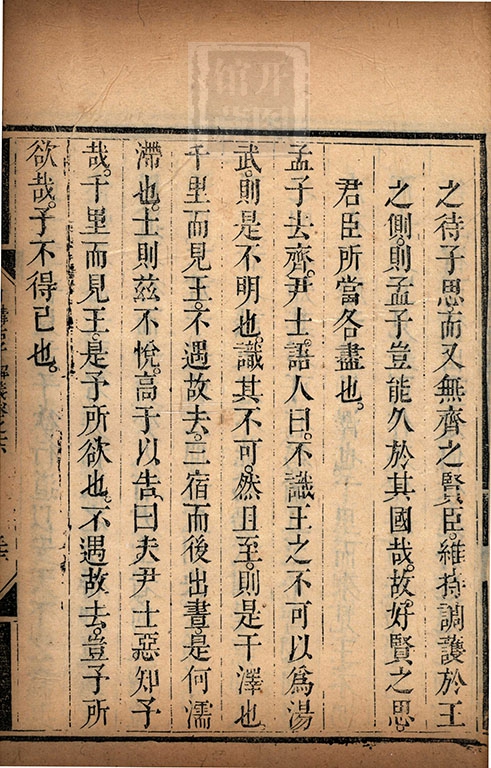 之待子思而又無齊之賢臣。維持調護於王
之側。則孟子豈能久於其國哉。故好賢之思。
君臣所當各盡也。
孟子去齊。尹士語人曰。不識王之不可以爲湯
武。則是不明也。識其不可。然且至。則是干澤也。
千里而見王。不遇故去。三宿而後出晝。是何濡
滯也。士則茲不悅。高子以告。曰夫尹士惡知予
哉。千里而見王。是予所欲也。不遇故去。豈予所
欲哉。予不得已也。